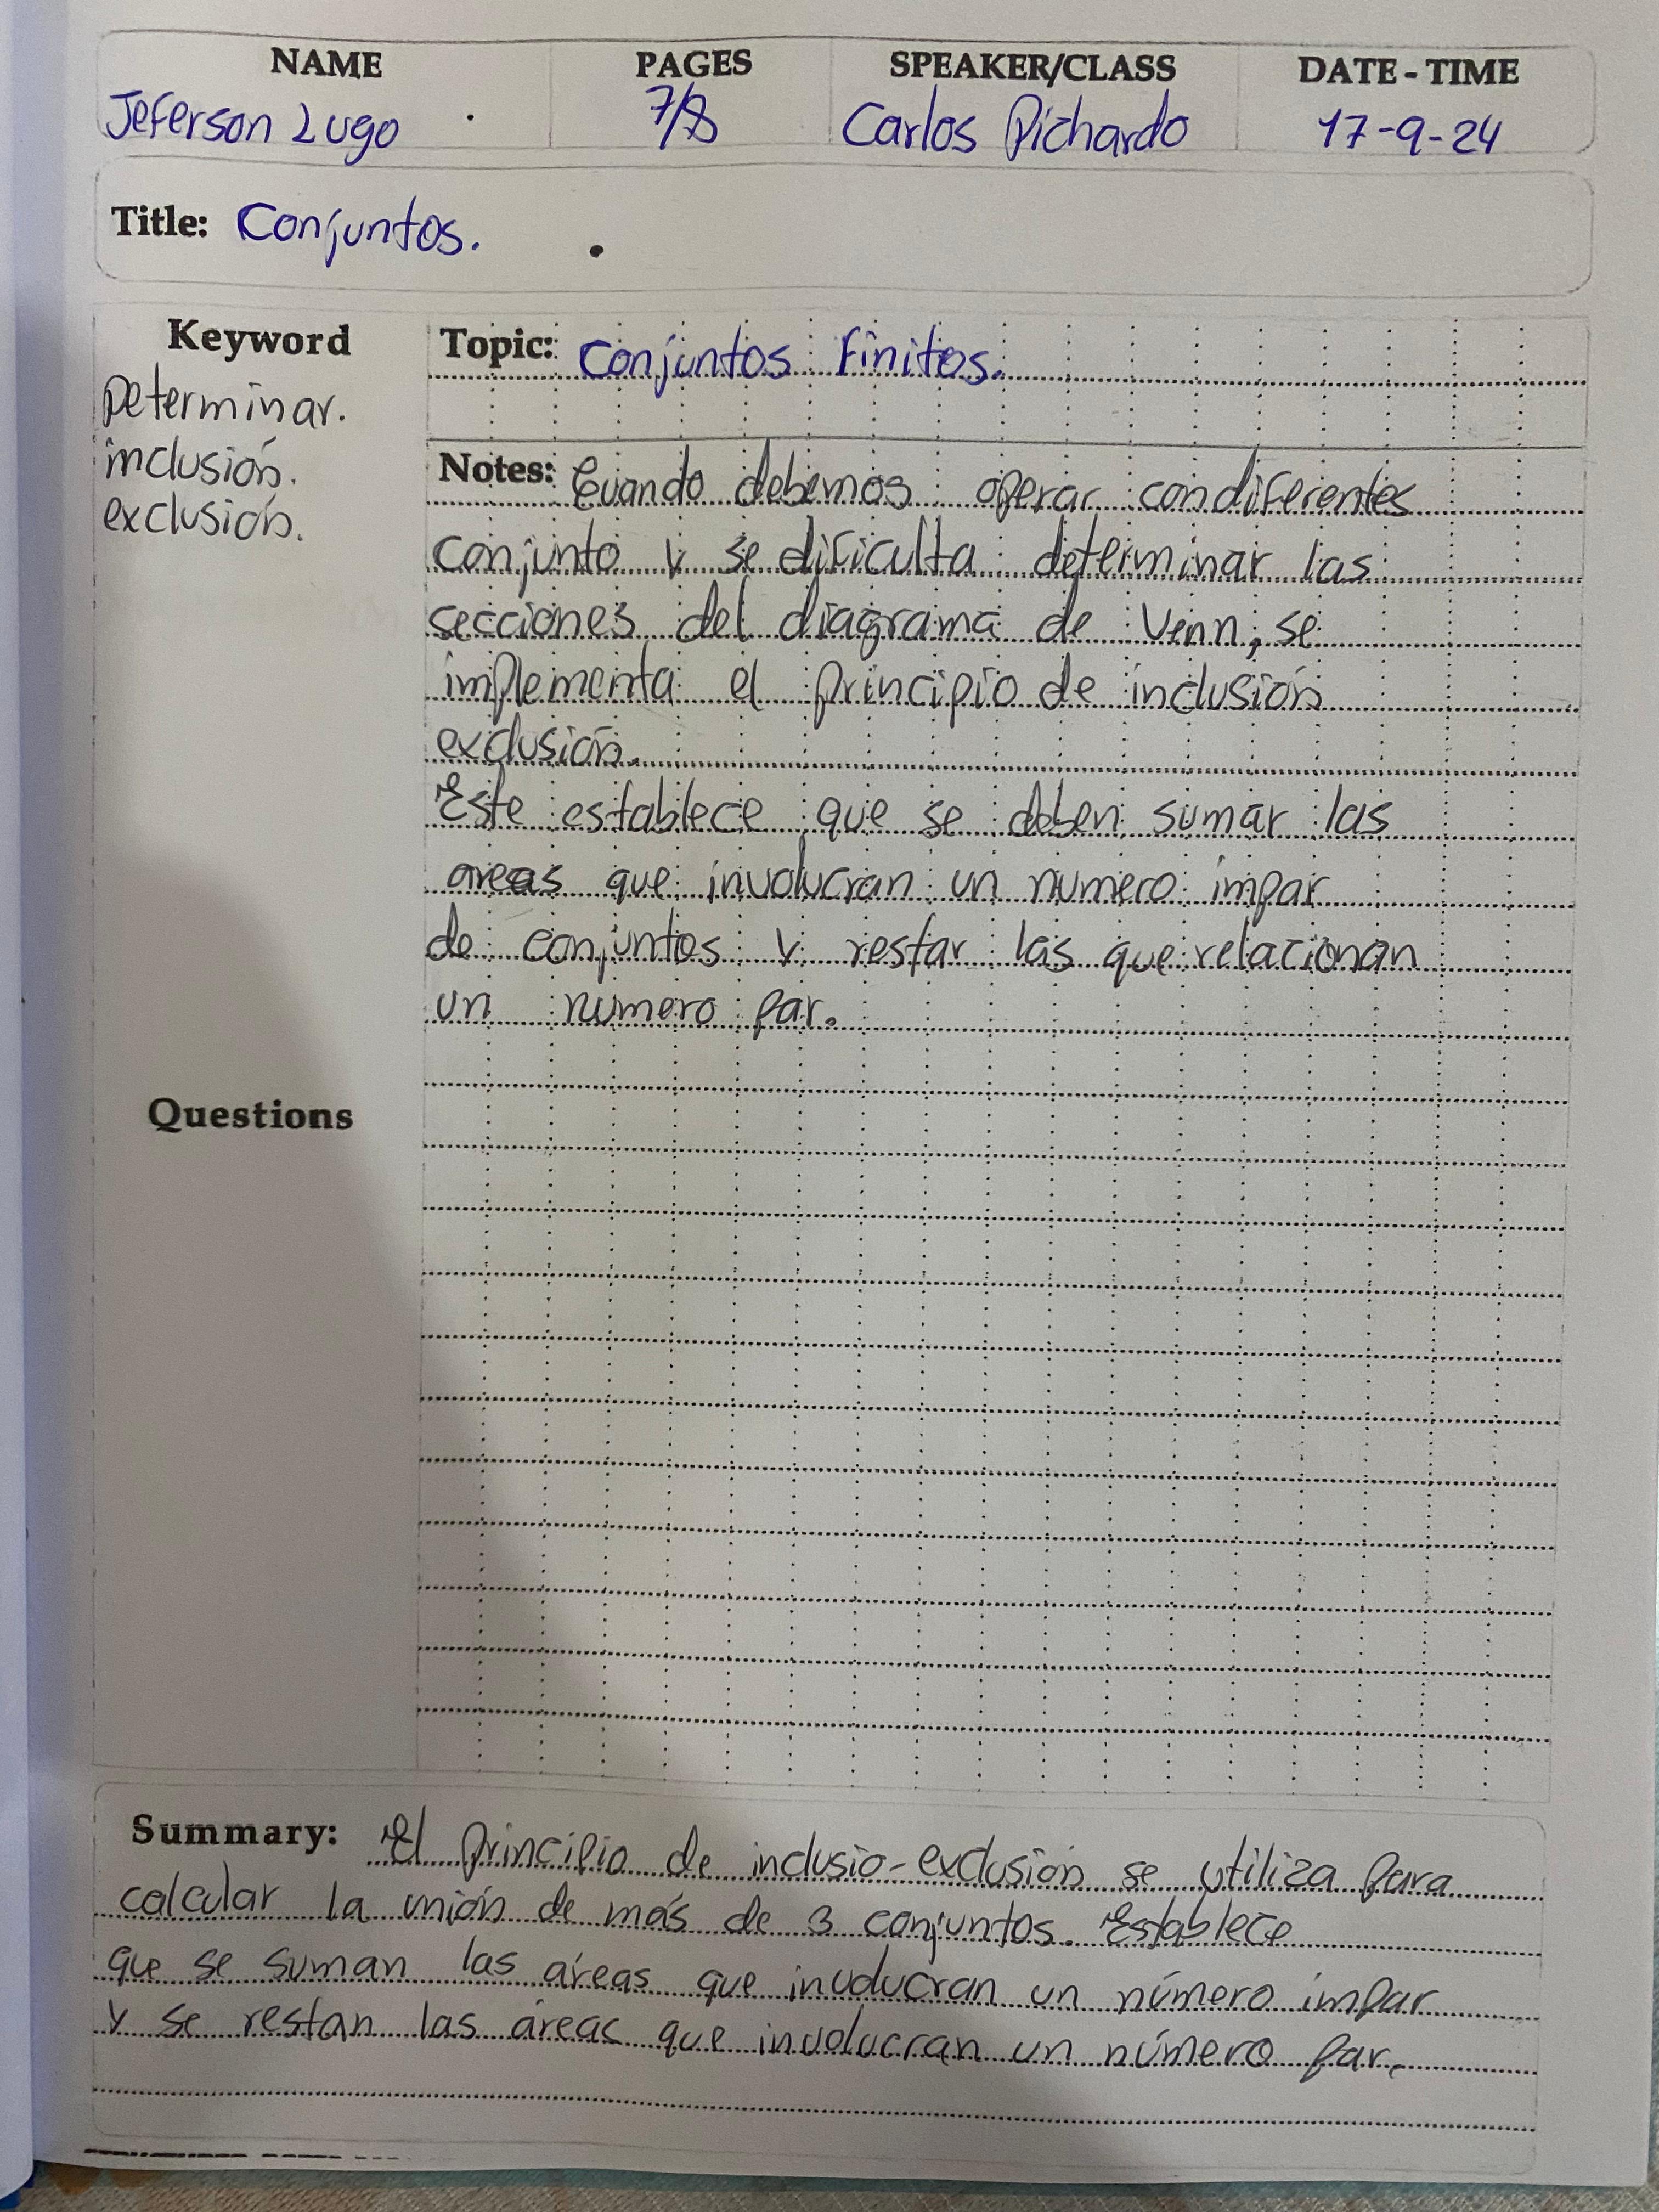 NAME PAGES SPEAKER/CLASS DATE - TIME
Jeferson Lugo 7/8 Carlos Pichardo 17-9-24
Title: Conjuntos.
Keyword
Determinar.
inclusión.
exclusión.
Topic: Conjuntos Finitos.
Notes: Cuando debemos operar con diferentes
conjunto y se dificulta determinar las
secciones del diagrama de Venn, se
implementa el principio de inclusión
exclusión.
Este establece que se deben sumar las
areas que involucran un numero impar
de conjuntos y restar las que relacionan
un numero par.
Questions
Summary: El principio de inclusio-exclusión se utiliza para
calcular la unión de más de 3 conjuntos. Establece
que se suman las áreas que involucran un número impar
y se restan las áreas que involucran un número par.